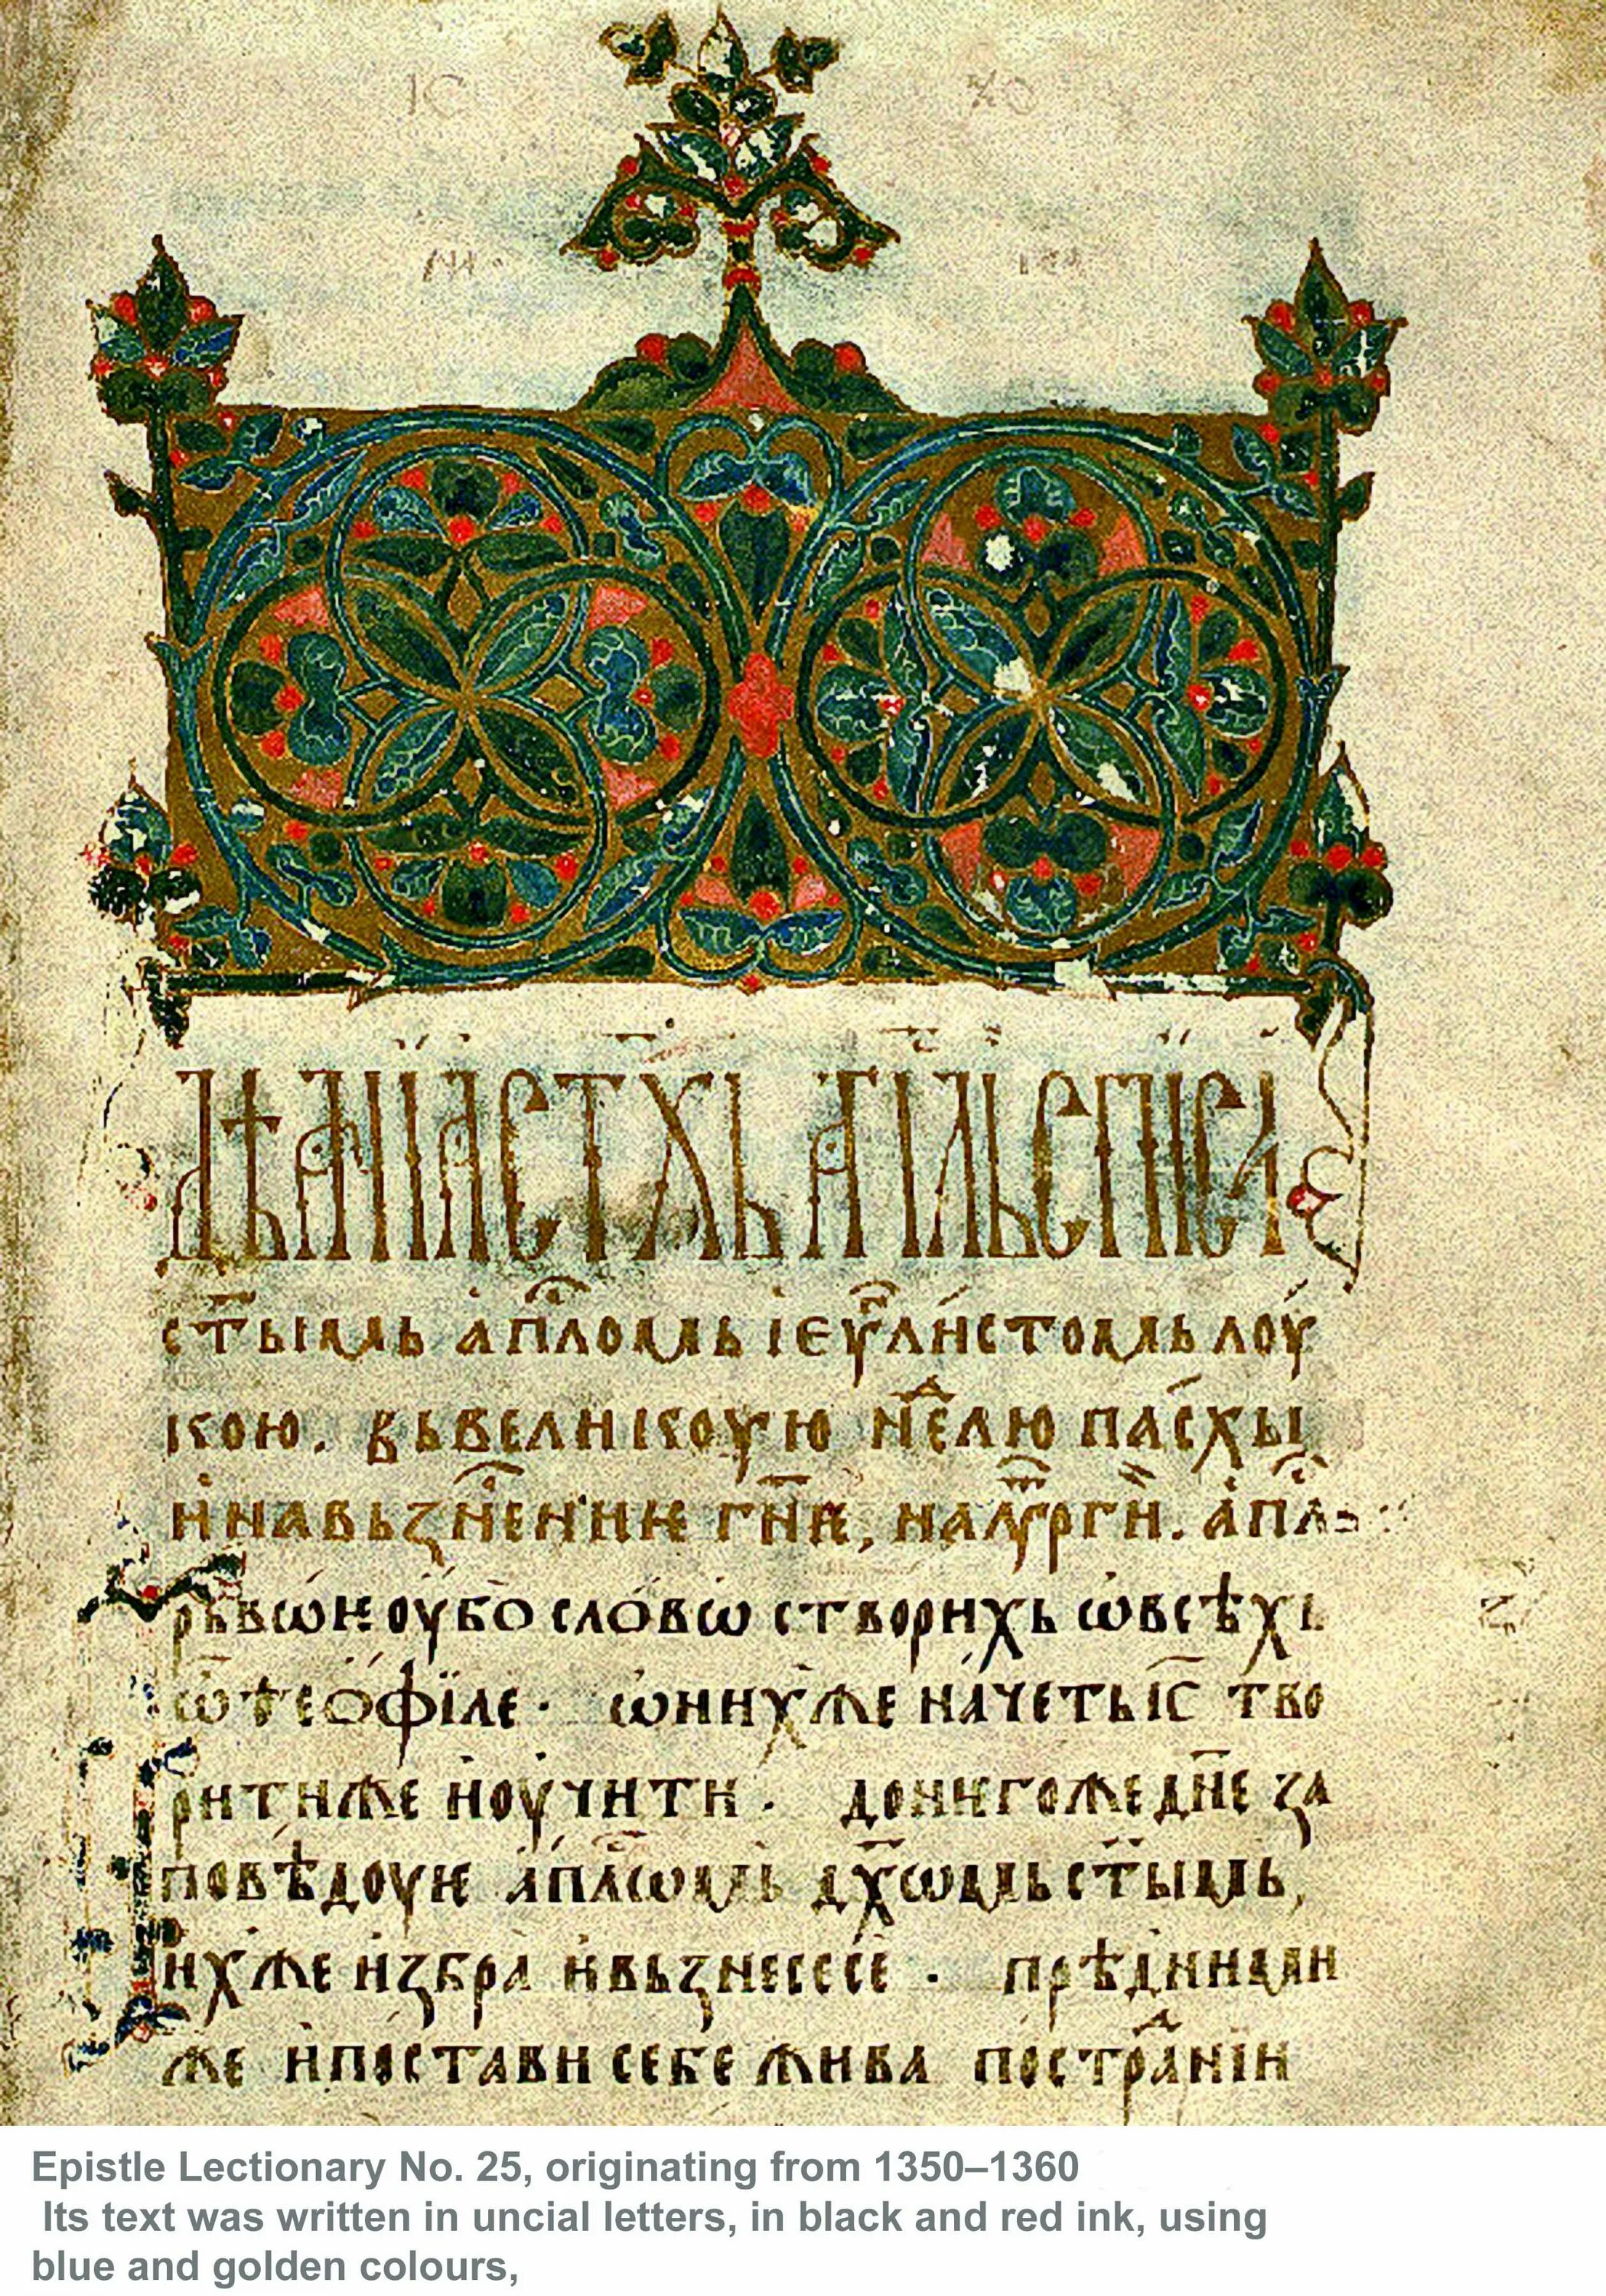 ДѢꙖНІꙖ СТХЬ АПЛЬ СПИСА
стыимь апⷭ҇ломь і еѵⷢ҇листомь лоу
кою. вь великоую нⷣелю пасхы
и на вьзнⷭ҇ение гн҃е, на лѵⷮргіи. апⷭ҇ль
рьвѡе оубо слово створихь ѡ всѣхь
ѡ теофіле · ѡ нихже начеть іс҃ тво
рити же и оучити · до нѥгоже дн҃е за
повѣдоуѥ апⷭ҇лѡмь дх҃ѡмь ст҃ыимь,
ихже избра и вьзнесе се · прѣд ними
же и постави себе жива по страⷣніи
Epistle Lectionary No. 25, originating from 1350–1360
Its text was written in uncial letters, in black and red ink, using
blue and golden colours,